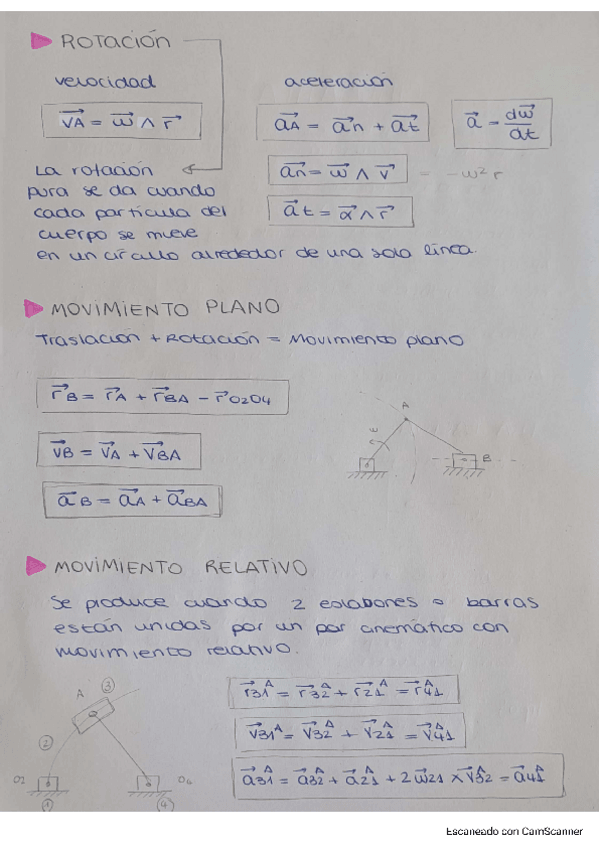 ROTACIÓN
velocidad
aceleración
v⃗A = w⃗ ∧ r⃗
a⃗A = a⃗n + a⃗t
a⃗ = dw⃗/dt
a⃗n = w⃗ ∧ v⃗ = -w² r
a⃗t = α⃗ ∧ r⃗
La rotación
pura se da cuando
cada partícula del
cuerpo se mueve
en un círculo alrededor de una sola línea.
MOVIMIENTO PLANO
Traslación + Rotación = Movimiento plano
r⃗B = r⃗A + r⃗BA - r⃗O2O4
v⃗B = v⃗A + v⃗BA
a⃗B = a⃗A + a⃗BA
A
B
MOVIMIENTO RELATIVO
Se produce cuando 2 eslabones o barras
están unidas por un par cinemático con
movimiento relativo.
r⃗31ᴬ = r⃗32ᴬ + r⃗21ᴬ = r⃗41ᴬ
v⃗31ᴬ = v⃗32ᴬ + v⃗21ᴬ = v⃗41ᴬ
a⃗31ᴬ = a⃗32ᴬ + a⃗21ᴬ + 2w⃗21 × v⃗32ᴬ = a⃗41ᴬ
A
3
2
O2
O4
1
4
Escaneado con CamScanner